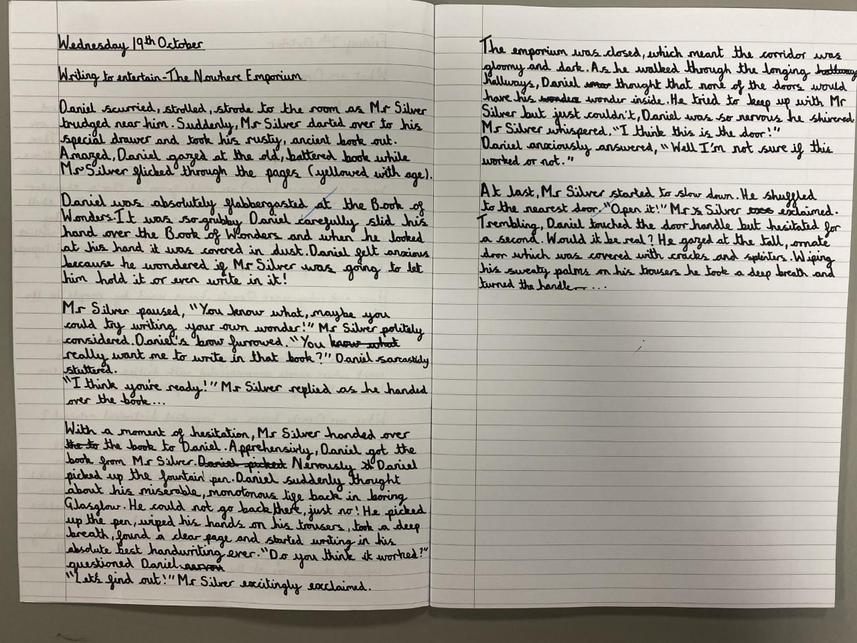 Wednesday 19th October
Writing to entertain - The Nowhere Emporium
Daniel scurried, strolled, strode to the room as Mr Silver
trudged near him. Suddenly, Mr Silver darted over to his
special drawer and took his rusty, ancient book out.
Amazed, Daniel gazed at the old, battered book while
Mr Silver flicked through the pages (yellowed with age).
Daniel was absolutely flabbergasted at the Book of
Wonders. It was so grubby Daniel carefully slid his
hand over the Book of Wonders and when he looked
at his hand it was covered in dust. Daniel felt anxious
because he wondered if Mr Silver was going to let
him hold it or even write in it!
Mr Silver paused, "You know what, maybe you
could try writing your own wonder!" Mr Silver politely
considered. Daniel's brow furrowed. "You know what
really want me to write in that book?" Daniel sarcastidy
stuttered.
"I think you're ready!" Mr Silver replied as he handed
over the book...
With a moment of hesitation, Mr Silver handed over
the to the book to Daniel. Apprehensivly, Daniel got the
book from Mr Silver. Daniel picked Nervously Daniel
picked up the fountain pen. Daniel suddenly thought
about his miserable, monotonous life back in boring
Glasglow. He could not go back there, just no! He picked
up the pen, wiped his hands on his trousers, took a deep
breath, found a clear page and started writing in his
absolute best handwriting ever. "Do you think it worked?"
questioned Daniel
"Let's find out!" Mr Silver excitingly exclaimed.
The emporium was closed, which meant the corridor was
gloomy and dark. As he walked through the longing
hallways, Daniel thought that none of the doors would
have his wonder inside. He tried to keep up with Mr
Silver but just couldn't, Daniel was so nervous he shivered
Mr Silver whispered. "I think this is the door!"
Daniel anxiously answered, "Well I'm not sure if this
worked or not."
At last, Mr Silver started to slow down. He shuffled
to the nearest door. "Open it!" Mr Silver exclaimed.
Trembling, Daniel touched the door handle but hesitated for
a second. Would it be real? He gazed at the tall, ornate
door which was covered with cracks and splinters. Wiping
his sweaty palms on his trousers he took a deep breath and
turned the handle...